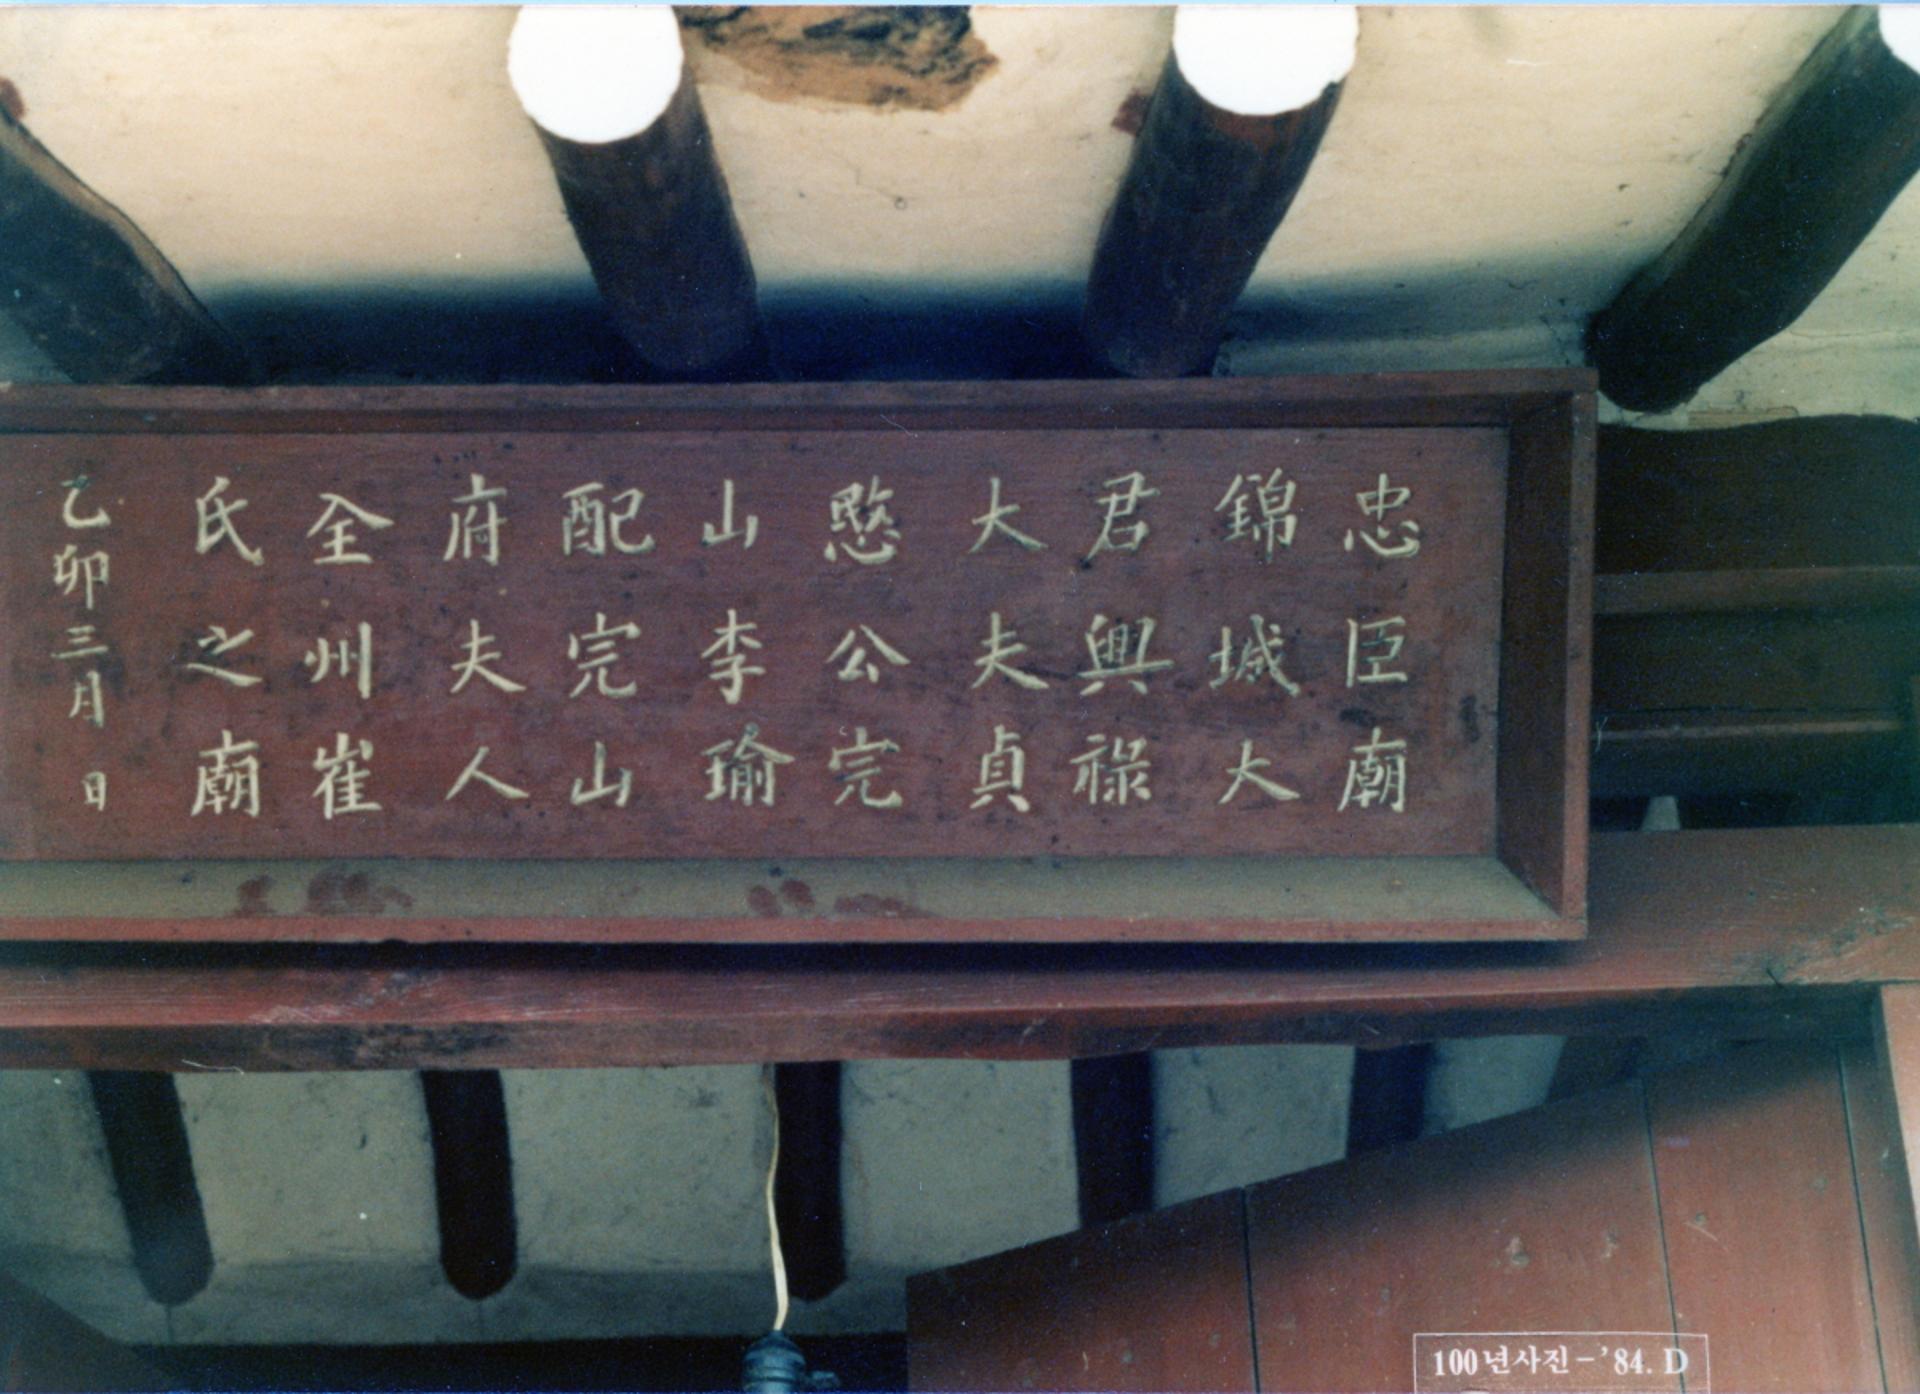 忠臣廟
錦城大
君興祿
大夫貞
愍公完
山李瑜
配完山
府夫人
全州崔
氏之廟
乙卯三月 日
100년사진-'84. D